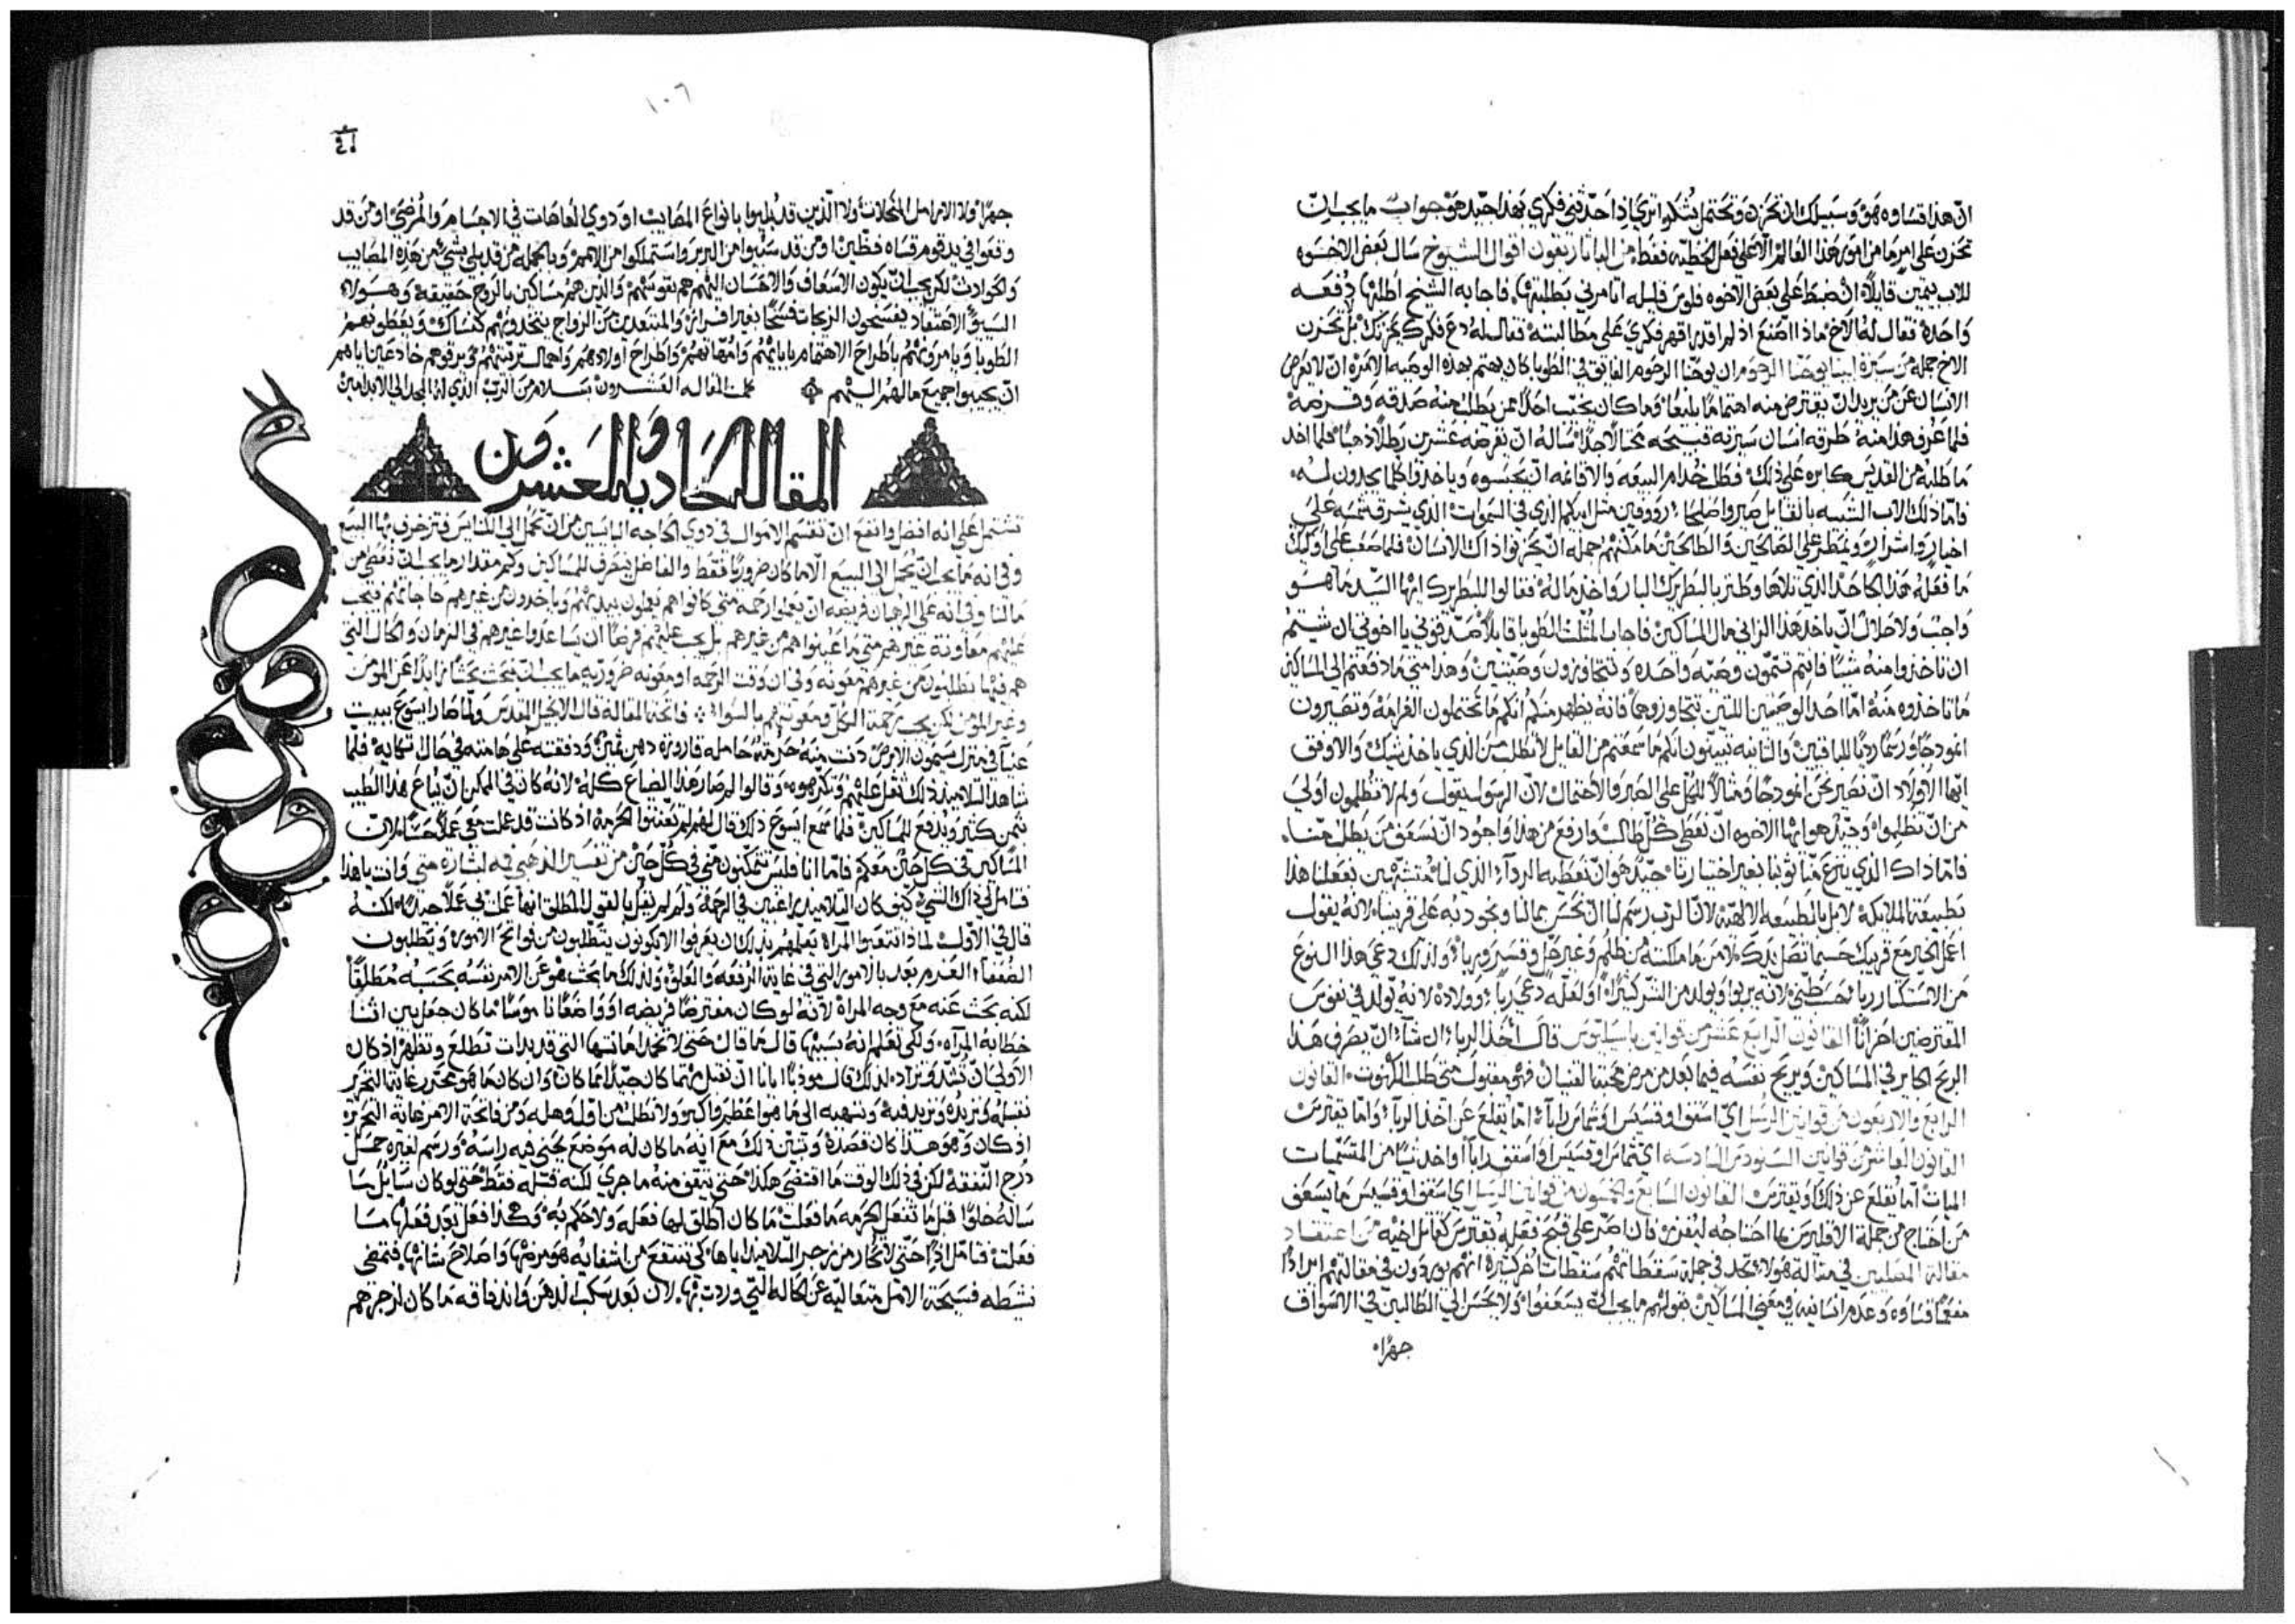 ان هذا قساوه هو وسبيلك ان تحزن وتحتمل بشكر اترى اذا حدثني فكري بهذا جيد هو جواب ما يجب ان
تحزن على امر ما من امور هذا العالم الا على فعل الخطيه فقط من الباتاريقون اقوال الشيوخ سال بعض الاخوه
للاب بيمين قايلا ان ضبط على بعض الاخوه فلوس قليله اتامرني بطلبتها فاجابه الشيخ اطلبها دفعه
واحده فقال له الاخ ماذا اصنع اذ لم اقدر اقهر فكري على مطالبته فقال له دع فكرك يحزنك بل تحزن
الاخ جمله من سيرة ابينا يوحنا الرحوم ان يوحنا الرحوم الفايق في الطوبا كان يهتم بهذه الوصيه الامره ان لا يعرض
الانسان عن من يريد ان يقترض منه اهتماما بليغا وما كان يخيب احدا ممن يطلب منه صدقه وقرضه
فلما عرف هذا منه طرقه انسان سيرته قبيحه محتالا جدا ساله ان يقرضه عشرين رطلا ذهبا فلما اخذ
ما طلبه من القديس كابره على ذلك فظل خدام البيعه والاقانمه ان يحبسوه وياخذوا كلما يجدون له
فاما ذلك الاب الشبيه بالقايل صيروا صلحا رووفين مثل ابيكم الذي في السموات الذي يشرق شمسه على
اخيار واشرار ويمطر على الصالحين والطالحين ما مكنهم جمله ان يحزنوا ذاك الانسان فلما صعب على اوليك
ما فعله هذا الجاحد الذي تلاها وطنز بالبطريرك البار واخذ ماله فقالوا للبطريرك ايها السيد ما هو
واجب ولا حلال ان ياخذ هذا الزاني مال المساكين فاجاب المثلث الطوبا قايلا صدقوني يا اخوتي ان شيتم
ان تاخذوا منه شيا فانتم تتمون وصيه واحده وتتجاوزون وصيتين وهذا متى ما دفعتم الى المساكين
ما تاخذوه منه اما احد الوصيتين اللتين تتجاوزوهما فانه يظهر منكم انكم ما تحتملون الغرامه وتصيرون
انموذجا ورسما رديا للباقيين والثانيه تبينون انكم ما سمعتم من القايل لا تطلب من الذي ياخذ شيك والاوفق
ايها الاولاد ان نصير نحن انموذجا ومثالا للكل على الصبر والاحتمال لان الرسول يقول ولم لا تظلمون اولى
من ان تظلموا وجيد هو ايها الاخوه ان نعطي كل طالب وارفع من هذا واجود ان نسعف من يطلب منا
فاما ذاك الذي ينزع منا ثوبنا بغير اختيارنا جيد هو ان نعطيه الردآ الذي لنا متشبهين بفعلنا هذا
بطبيعة الملايكة لا بل بالطبيعه الالهيه لان الرب رسم لنا ان نحسن بمالنا ونجود به على قريبنا لانه يقول
اعمل الخير مع قريبك حسبما تصل يدك لا من ما ملكته من ظلم وغير حل وقسر وربا ولذلك دعي هذا النوع
من الاستكثار ربا
المقترضين احزانا القانون الرابع عشر من قوانين باسيليوس قال اخذ الربا ان شآ ان يصرف هذا
الربح الجاير في المساكين ويريح نفسه فيما بعد من مرض محبة القنيان فهو مقبول متى طلب الكهنوت القانون
الرابع والاربعون من قوانين الرسل اي اسقف او قسيس او شماس اما يقلع عن اخذ الربآ واما يقترس
القانون العاشر من قوانين السنودس السادسه اي شماس او قسيس او اسقف
اما يقلع عن ذلك او يقترس القانون السابع والخمسون من قوانين الرسل اي اسقف او قسيس ما يسعف
من احتاج من جملة الاقليرس بما احتاجه ليفرز فان اصر على قبح فعله يقترس كقاتل اخيه من اعتقاد
مقالة المصلين في مقالة هولا تجد في جملة سقطاتهم سقطات اخر كثيره انهم يوردون في مقالتهم ايرادا
مفعما قساوه وعدم انسانيه في معنى المساكين بقولهم ما يجب ان يسعفوا ولا يحسن الى الطالبين في الاسواق
جهرا
١٠٦
جهرا ولا الارامل المنحلات ولا الذين قد بليوا بانواع المصايب او ذوي العاهات في الاجسام والمرضى او من قد
وقعوا في يد قوم قساه فظين او من قد سلبوا من البربر واستملكوا من الامم وبالجمله من قد بلي بشي من هذه المصايب
والحوادث لكن يجب ان يكون الاسعاف والاحسان اليهم هم بقوتهم والذين هم مساكين بالروح حقيقة وهولا
السيوا الاعتقاد يفسحون الزيجات فسحا بغير افراز والمتبعدين من الزواج يتخذونهم كنساك ويعطونهم
الطوبا ويامرونهم باطراح الاهتمام باباتهم وامهاتهم واطراح اولادهم واهمال تربيتهم خادعين اياهم
ان يجيبوا جميع ما لهم اليهم كملت المقاله العشرون بسلام من الرب الذي له المجد الى الابد امين
المقاله الحاديه والعشرون
تشتمل على انه افضل وانفع ان تقسم الاموال في ذوي الحاجه البايسين من ان تحمل الى الكنايس فتزخرف بها البيع
وفي انه ما يجب ان يحمل الى البيع الا ما كان ضروريا فقط والفاضل يصرف للمساكين وكم مقدار ما يجب ان نعطي من
مالنا وفي انه على الرهبان فريضه ان يعملوا رحمه متى كانوا هم يعملون بيديهم وياخذون من غيرهم حاجاتهم فيجب
عليهم معاونة غيرهم متى ما اعينوا هم من غيرهم بل يجب عليهم فرضا ان يساعدوا غيرهم في الزمان والحال التي
هم فيها يطلبون من غيرهم معونه وفي ان وقت الرحمه او معونه ضروريه ما يجب ان نبحث بحثا زايدا عن المومن
وغير المومن لكن يجب رحمة الكل ومعونتهم بالسوا فاتحة المقالة قال الانجيل المقدس ولما صار ايسوع ببيت
عنيآ في منزل سيمون الابرص دنت منه حرمة حامله قارورة دهن ثمين ودفقته على هامته في حال اتكايه فلما
شاهد التلاميذ ذلك ثقل عليهم وتكرهوه وقالوا لم صار هذا الضياع كله لانه كان في الممكن ان يباع هذا الطيب
بثمن كثير ويدفع للمساكين فلما سمع ايسوع ذلك قال لهم لم تعنتوا الحرمة اذ كانت قد عملت معي عملا حسنا لان
المساكين في كل حين معكم فاما انا فليس تتمكنون مني في كل حين من تفسير الذهبي فيه لبشارة متى وانت يا هذا
فتامل لي ذاك الشي كيف كان التلاميذ راغبين في الرحمة ولم لم يقل بالقول المطلق انها عملت في عملا جيدا لكنه
قال في الاول لماذا تتعبوا المراة يعلمهم بذلك ان يعرفوا الا يكونون يتطلبون من فواتح الامور ويطلبون
الضعفا العزم بعد بالامور التي في غاية الرفعه والعلو ولذلك ما بحث هو عن الامر نفسه بحسبه مطلقا
لكنه بحث عنه مع وجه المراة لانه لو كان مفترضا فريضه او واضعا ناموسا ما كان جعل بين اثنا
خطابة المرآه ولكي تعلم انه بسببها قال ما قال حتى لا تخمد امانتها التي قد بدات تطلع وتظهر اذ كان
الاولى ان تشد وتزاد لذلك قال مودبا ايانا ان نقبل مهما كان صيدا ما كان وان كان ما هو محرر غاية التحرير
نقبله لكي نربيه ونزيد فيه ونتنهيه الى ما هو اعظم واكبر ولا نطلب من اول وهله ومن فاتحة الامر غاية التحرير
اذ كان وهو هذا كان قصده وتبين ذلك مع انه ما كان له موضع يحني فيه راسه ورسم لغيره حمل
درج النفقه لكن في ذلك الوقت ما اقتضى هكذا حتى يتفق منه ما جرى لكنه قبله فقط حتى لو كان سايل سا
ساله خلوا قبل ما تفعل الحرمه ما فعلت ما كان اطلق لها فعله ولا حكم به وهكذا فعل بدر فعلها ما
فعلت فتامل اذا حتى لا تحار من زجر التلاميذ اياها كي تنتفع من اشفايه هو مرضها واصلاح شانها فتمضي
نشطه فسيحة الامل متعاليه عن الحاله التي وردت بها لان بعد سكب الدهن واندفاقه ما كان لزجرهم